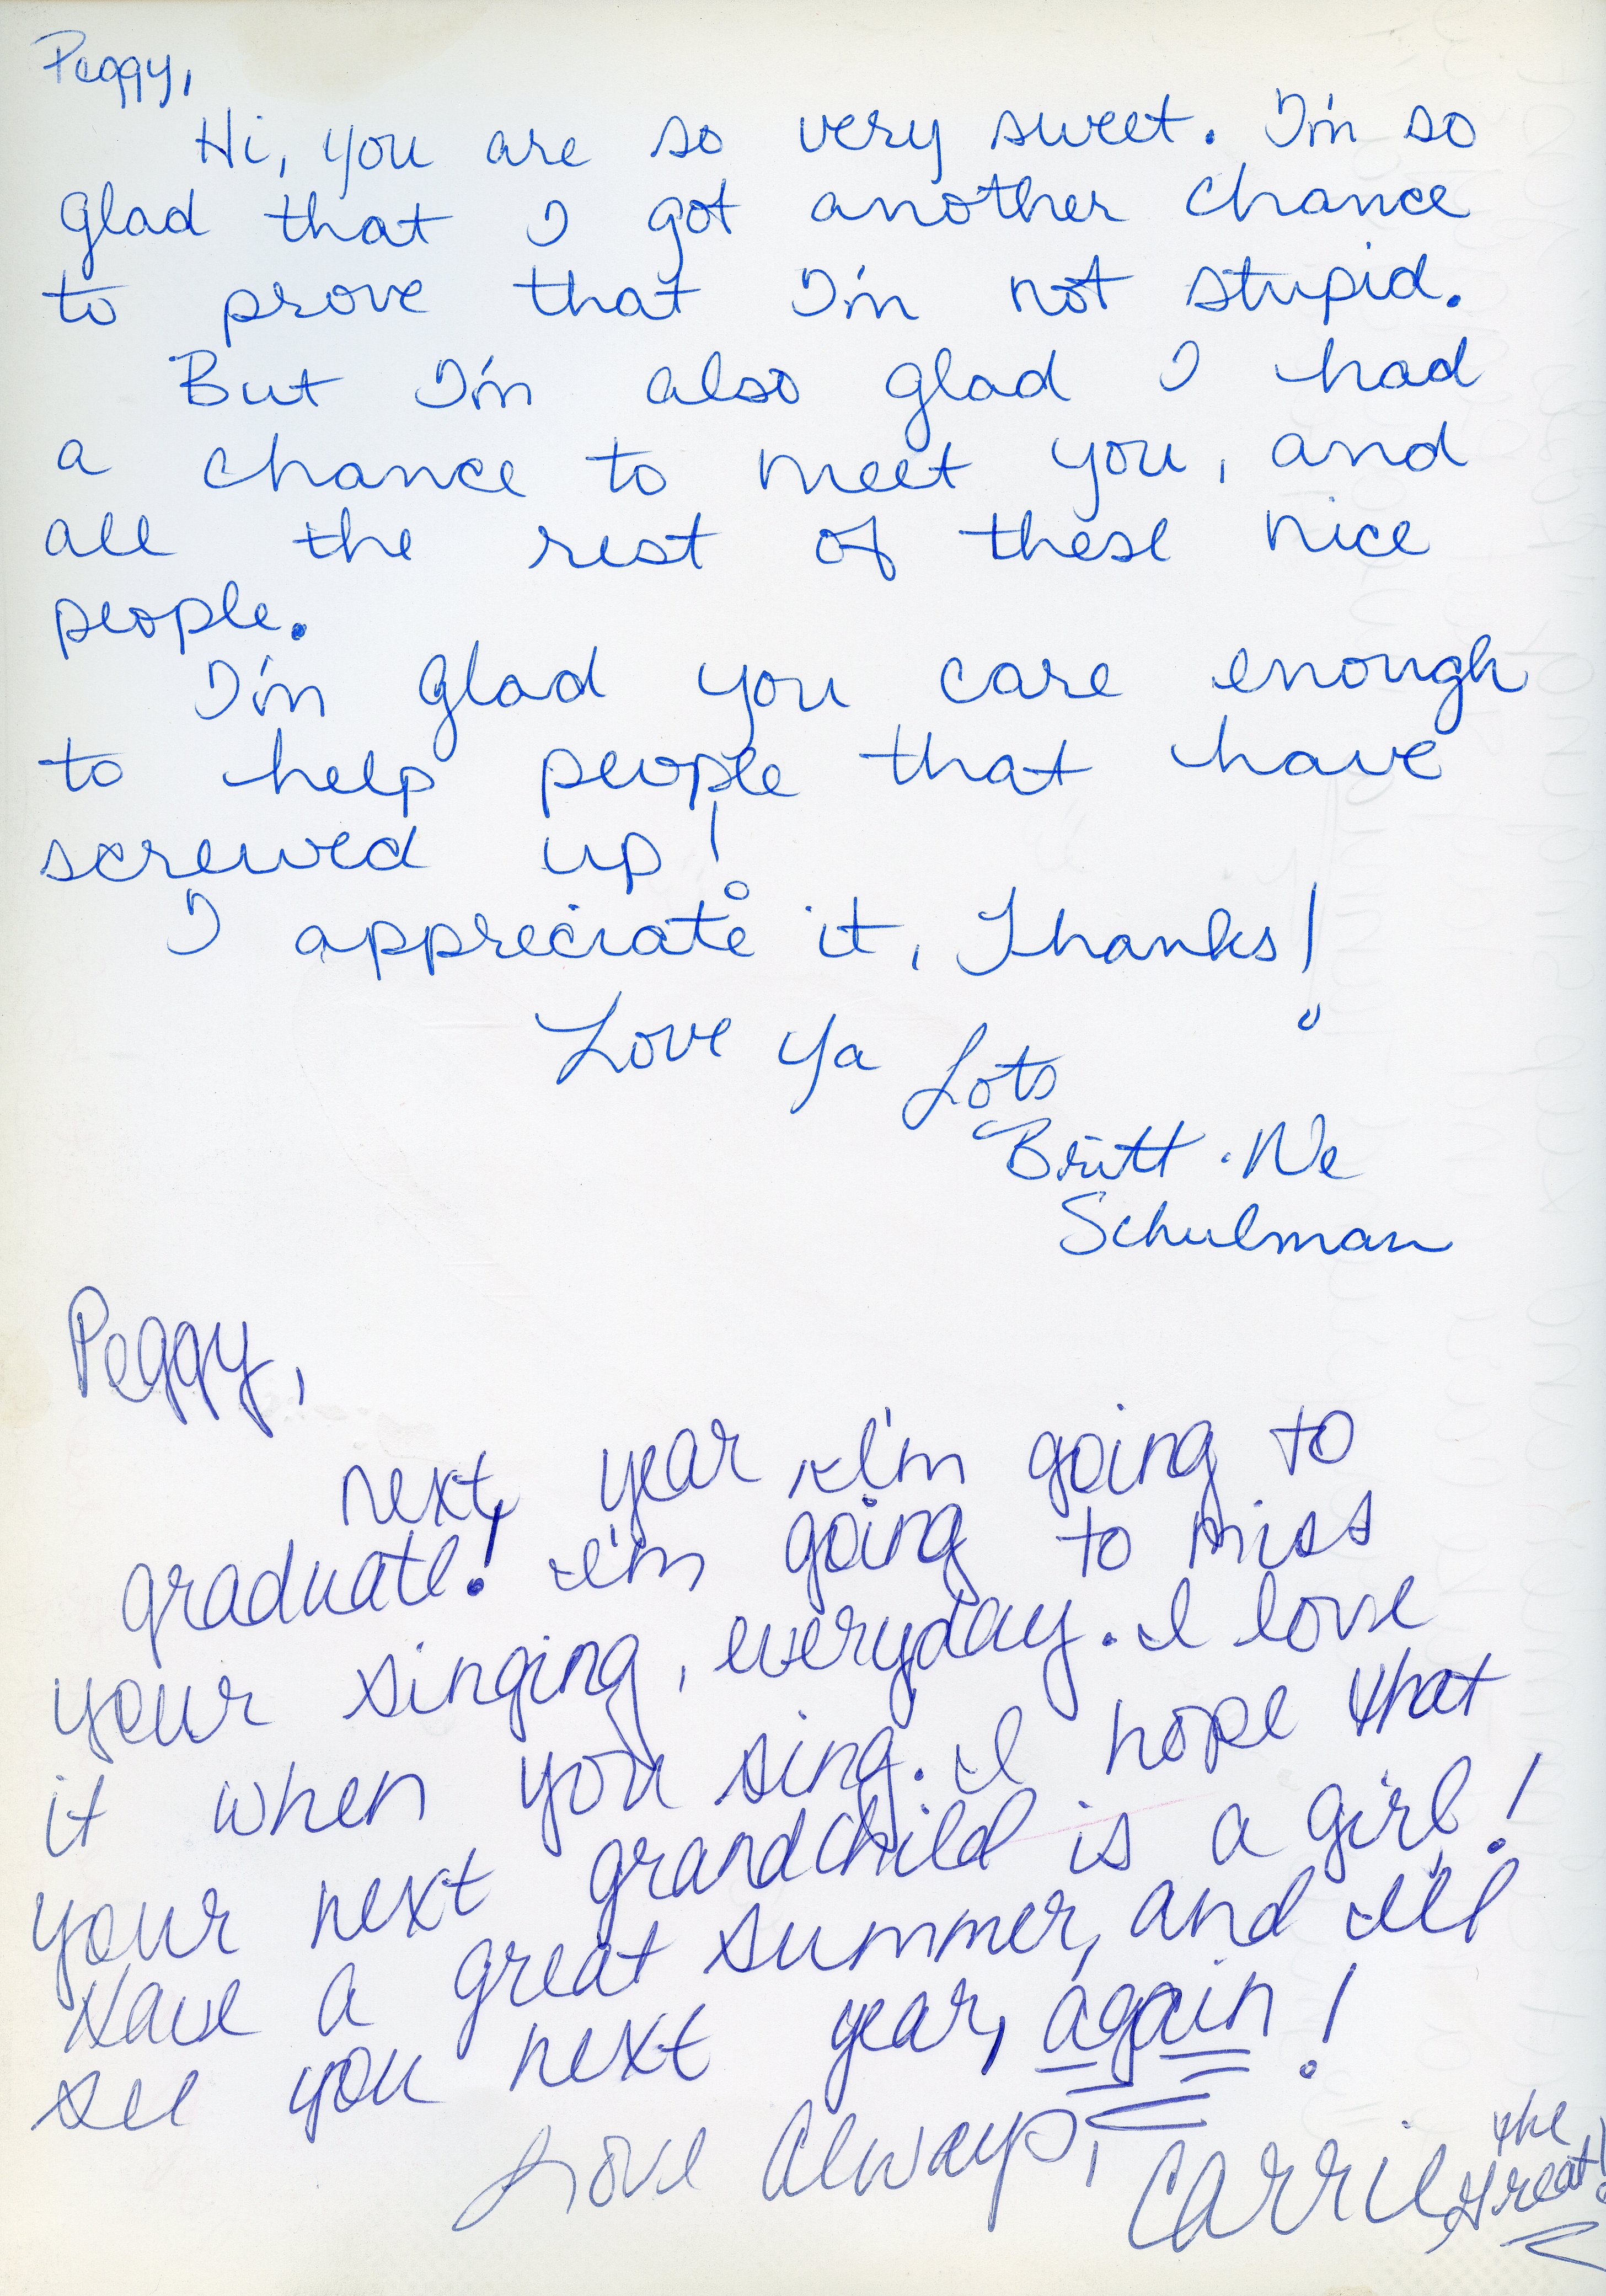 Peggy,
Hi, you are so very sweet. I'm so
glad that I got another chance
to prove that I'm not stupid.
But I'm also glad I had
a chance to meet you, and
all the rest of these nice
people.
I'm glad you care enough
to help people that have
screwed up!
I appreciate it, Thanks!
Love Ya Lots
Britt · Ne
Schulman
Peggy,
next year I'm going to
graduate! I'm going to miss
your singing, everyday. I love
it when you sing. I hope that
your next grandchild is a girl!
Have a great summer, and I'll
see you next year, again!
Love Always, Carrie, the
Great!